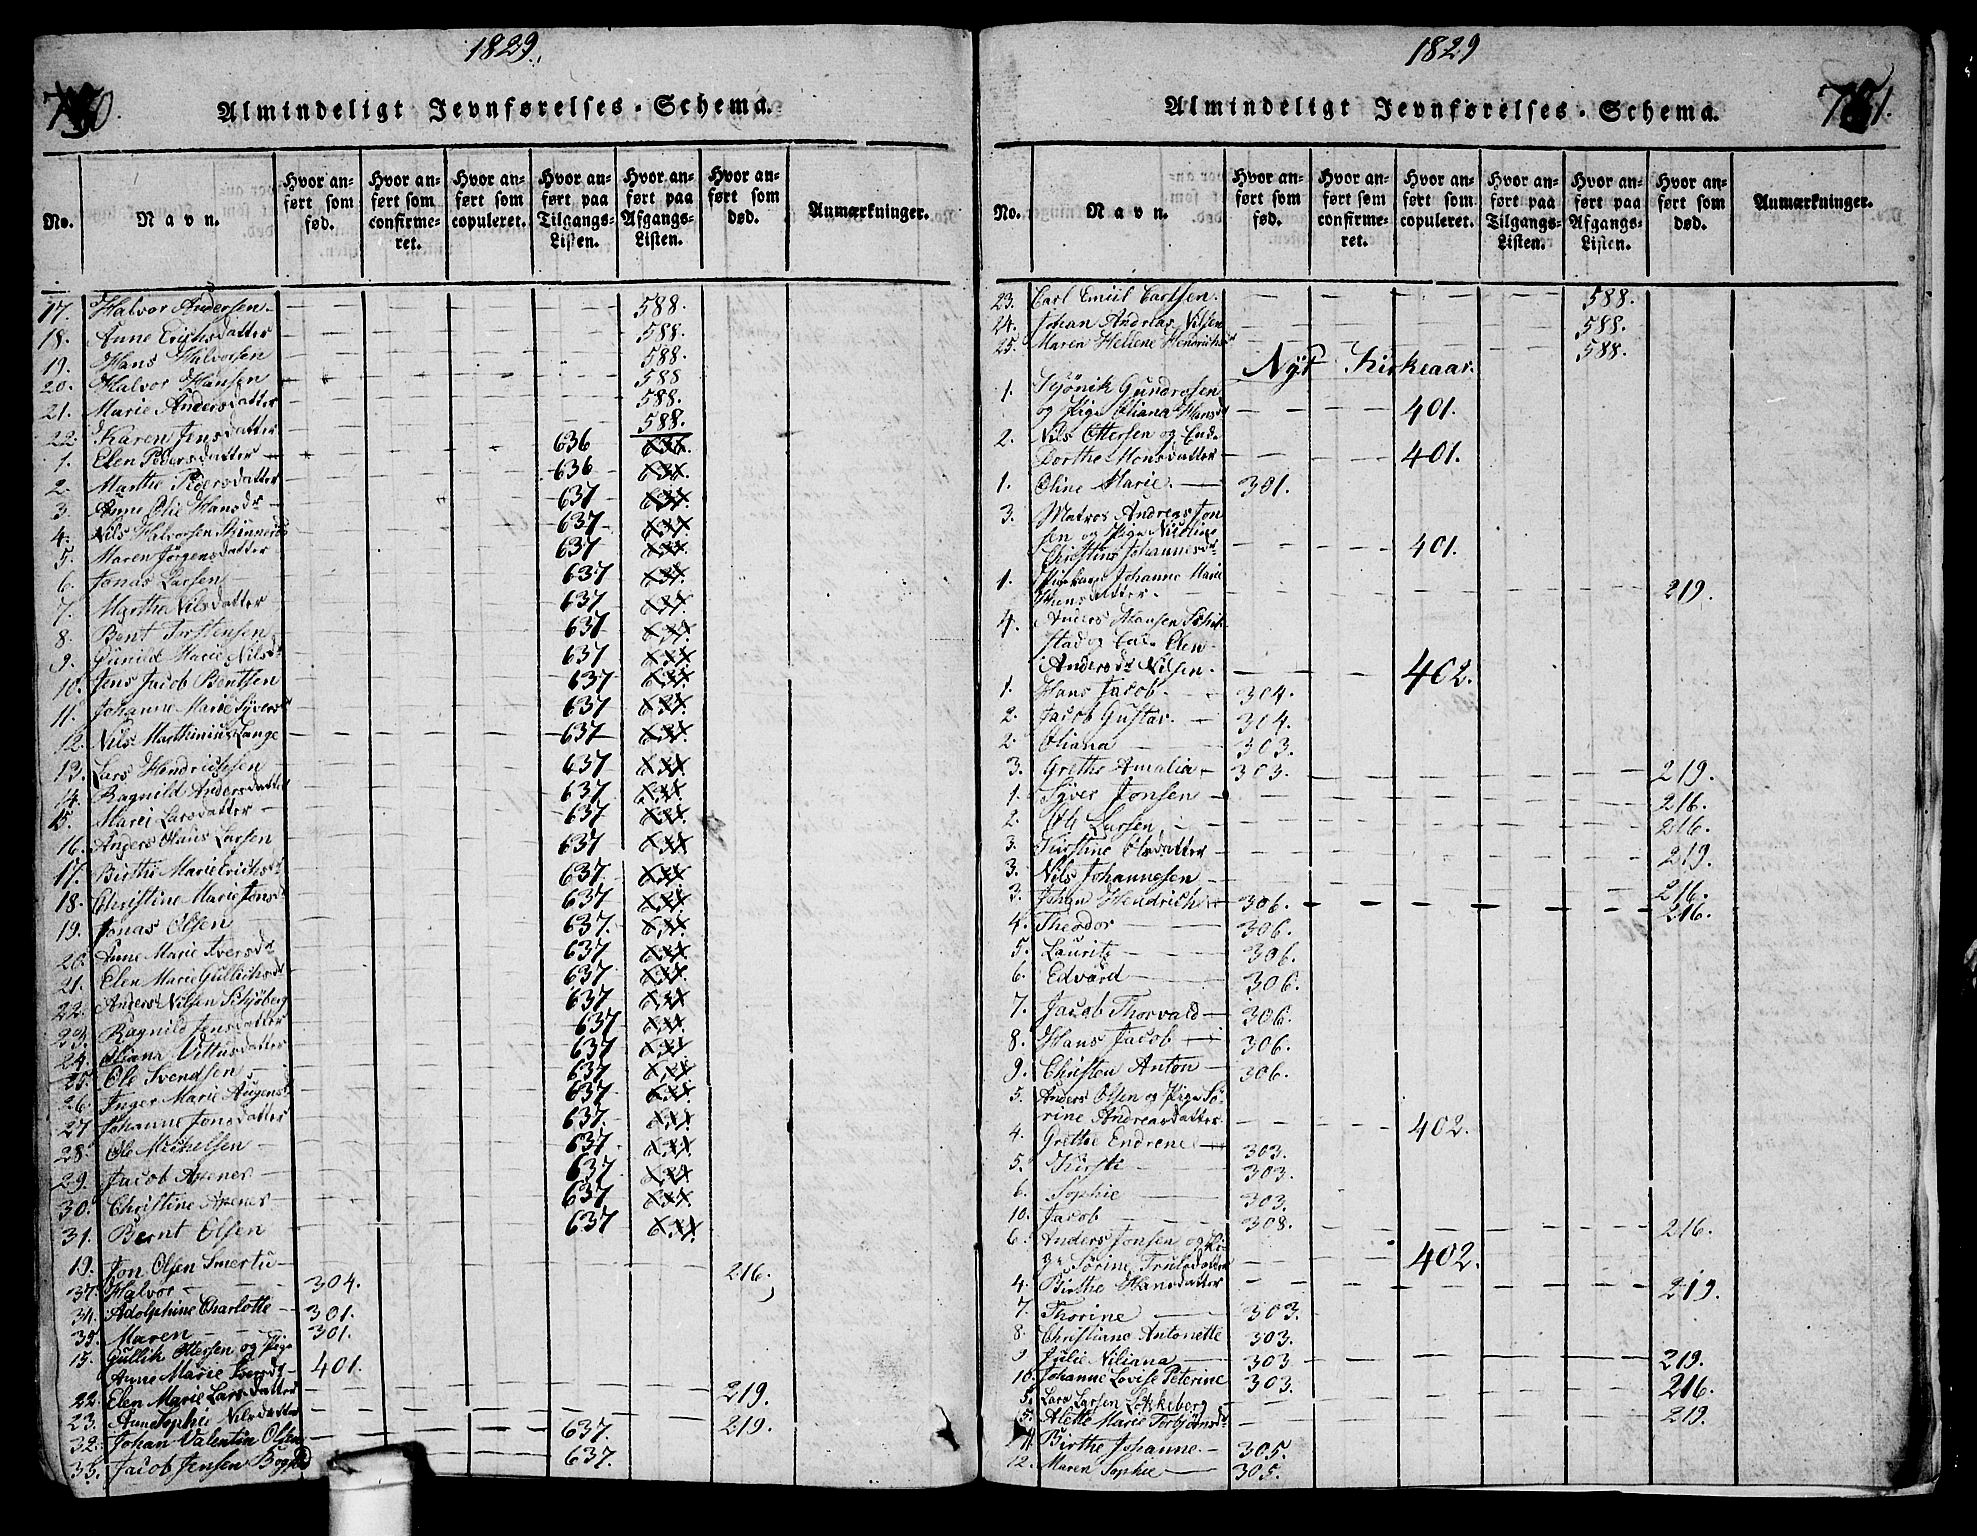 1829.
Almindeligt Jevnførelses-Schema.
No.
Navn.
Hvor anført som fød.
Hvor anført som confirmeret.
Hvor anført som copuleret.
Hvor anført paa Tilgangs-Listen.
Hvor anført paa Afgangs-Listen.
Hvor anført som død.
Anmærkninger.
17. Halvor Andersen 588.
18. Anne Erichsdatter 588.
19. Hans Halvorsen 588.
20. Halvor Hansen 588
21. Marie Andersdatter 588.
22. Karen Jensdatter 588.
1. Elen Pedersdatter 636
2. Marthe Pedersdatter 636
3. Anne Olie Hansdr 637
4. Nils Halvorsen 637
5. Maren Jørgensdatter 637
6. Jonas Larsen 637
7. Marthe Nilsdatter 637
8. Bent Torstensen 637
9. Gunild Marie Nilsdr 637
10. Jens Jacob Bentsen 637
11. Johanne Marie Syversdr 637
12. Nils Marthinius Lange 637
13. Lars Hendrichsen 637
14. Ragnild Andersdatter 637
15. Marei Larsdatter 637
16. Anders Claus Larsen 637
17. Birthe Marie Erichsdr 637
18. Christine Marie Jonsdr 637
19. Jonas Olsen 637.
20. Anne Marie Iversdr 637
21. Elen Marie Gullichsdr 637
22. Anders Nilsen Schjøberg 637
23. Ragnild Jensdatter 637
24. Oliana Vittusdatter 637
25. Ole Svendsen 637
26. Inger Marie Augensdr 637
27 Johanne Jonsdatter 637
28. Ole Michelsen 637
29. Jacob Apenes 637
30. Christine Apenes 637
31. Bernt Olsen 637
19. Jon Olsen Smertu 216.
37. Halvor 304.
34. Adolphine Charlotte 301.
35. Maren 301.
15. Gullik Ottersen og Pige
Anne Marie Svendsdr 401.
22. Elen Marie Larsdatter 219.
23. Anne Sophie Nilsdatter 219.
32. Johan Valentin Olsen 637.
33. Jacob Jensen 637.
1829
Almindeligt Jevnførelses-Schema.
No.
Navn.
Hvor anført som fød.
Hvor anført som confirmeret.
Hvor anført som copuleret.
Hvor anført paa Tilgangs-Listen.
Hvor anført paa Afgangs-Listen.
Hvor anført som død.
Anmærkninger.
23. Carl Emiil Carlsen. 588.
24. Johan Andreas Nilsen 588.
25. Maren Hellene Hendrichsdr 588.
Nyt Kirkeaar.
1. Gundersen
og Pige Oliana Hansdr 401.
2. Nils Ottersen og Enke
Dorthe Monsdatter 401.
1. Oline Marie 301.
3. Matros Andreas Jon
sen og Pige
Christine Johannesdr 401.
1. Johanne Marie
Hansdatter 219.
4. Anders Hansen
stad og Enke Elen
Andersdr Nilsen. 402.
1. Hans Jacob. 304.
2. Jacob Gustav. 304.
2. Oliana 303.
3. Grethe Amalia 303. 219.
1. Syver Jonsen 216.
2. Ole Larsen 216.
3. Kirstine Olsdatter 219.
3. Nils Johannesen 216.
3. Johan Hendrich 306. 216.
4. Theodor 306.
5. Lauritz 306.
6. Edvard 306.
7. Jacob Thorvald 306.
8. Hans Jacob 306.
9. Christen Anton 306.
5. Anders Olsen og Pige Sø
rine Andreasdatter 402.
4. Grethe Endrene 303.
5. Kirsti 303.
6. Sophie 303.
10. Jacob 308. 216.
6. Anders Jonsen og Pi
ge Sørine Trulsdatter 402.
4. Birthe Hansdatter 219.
7. Thorine 303.
8. Christiane Antonette 303.
9 Julie Niliana 303 219.
10. Johanne Lovise Peterine 303. 216.
5. Lars Larsen Løkkeberg
5. Alette Marie Torbjørnsdr 219.
11. Birthe Johanne 305.
12. Maren Sophie 305.